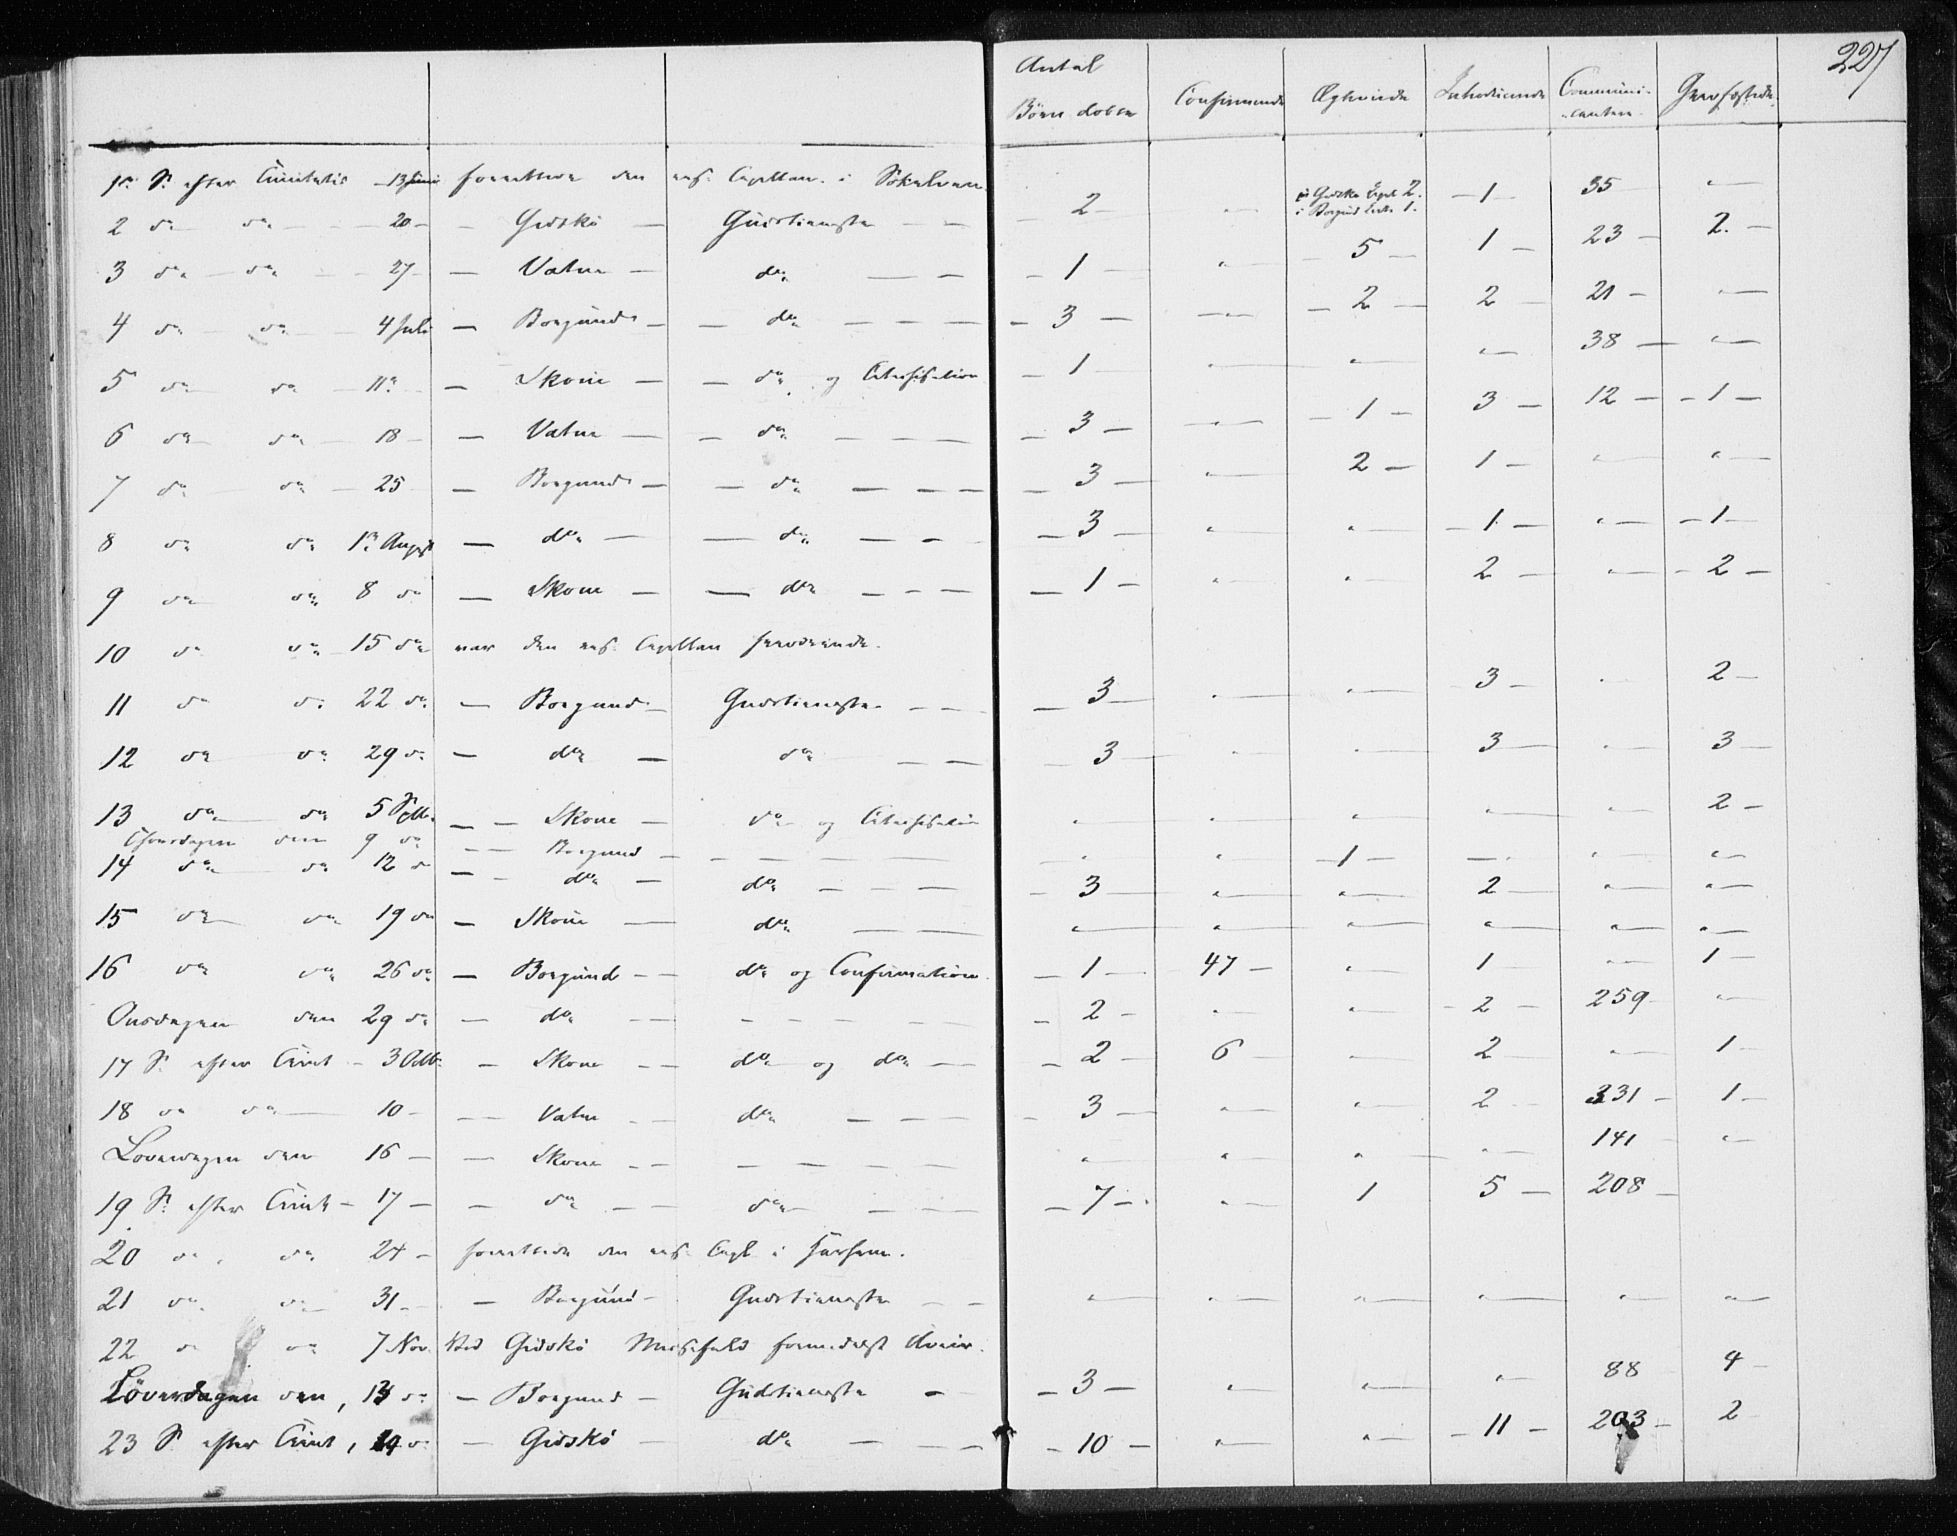 227
Antal
Börn döbte Confirmerede Ægteviede Introducerede Communi-
canterne Gravfæstede
1ste S. efter Trinitatis 13 Juni forrettede den res. Capellan i Sökelven
2 do do 20 — Gidskö — Gudstieneste — — 2 — " i Gidske Capel 2. i Borgund Kirke 1. — 1 — 35 "
3 do do 27 — Vatne — do — — 1 — " — 5 — 1 — 23 — 2 —
4 do do 4 Juli — Borgund — do — — — 3 — " — 2 — 2 — 21 — "
5 do do 11te — Skoue — do og Catechisation — 1 — " " " 38 — "
6 do do 18 — Vatne — do — — — 3 — " — 1 — 3 — 12 — 1 —
7 do do 25 — Borgund — do — — — 3 — " 2 — 1 — " "
8 do do 1ste August — do — do — — — 3 — " " — 1 — " — 1 —
9 do do 8 do — Skoue — do — — — 1 — " " 2 — " — 2 —
10 do do 15 do var den res. Capellan fraværende.
11 do do 22 do — Borgund — Gudstieneste — — 3 — " " 3 — " 2 —
12 do do 29 do — do — do — — 3 — " " 3 — " 3 —
13 do do 5 Septb. — — Skoue — do og Catechisation " " " " " 2 —
Thorsdagen den 9 do — — Borgund — — — — " " — 1 — — " " "
14 do do 12 do — — do — do — — — 3 — " " 2 — " "
15 do do 19 do — Skoue — do — — " " " " " "
16 do do 26 do — Borgund — — do og Confirmation — 1 — 47 — " 1 — " 1 —
Onsdagen den 29 do — do — — — — — — 2 — " " — 2 — 259 "
17 S. efter Trint — 3 Octb. — Skoue — — do og do — — 2 — 6 — " 2 — " 1 —
18 do do 10 — — Vatne — — do — — — 3 — " " 2 — 331 — 1 —
Löverdagen den 16 — — Skoue — — — — — — " " " " 141 "
19 S. efter Trint — 17 — — do — — do — — — 7 — " 1 5 — 208 —
20 do do 24 — forrettede den res. Capl. i
21 do do 31 — — Borgund — Gudstieneste — — " " " " " "
22 do do 7 Nov. Ved Gidskö Messefald formedelst Uveir.
Löverdagen den, 13 do — Borgund — Gudstieneste — — 3 — " " " 88 4 —
23 S. efter Trint, 14 do — Gidskö — do — — — 10 — " " — 11 — 203 — 2